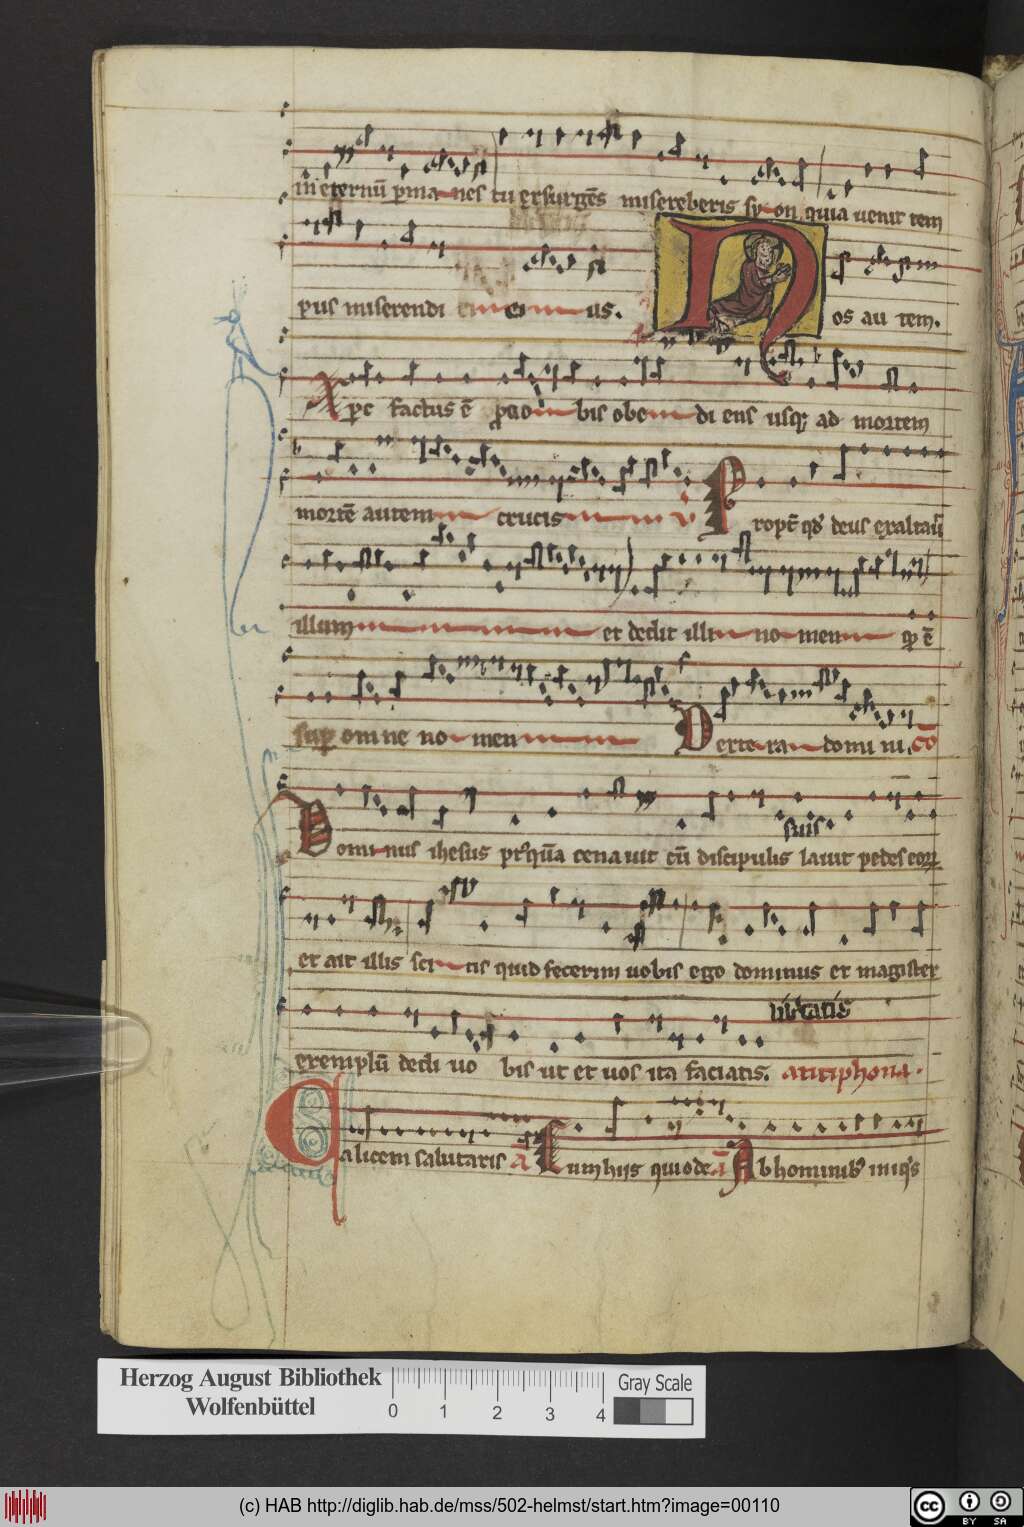 in eternū ꝑma nes tu exsurgēs misereberis sy on quia uenit tem
pus miserendi e i us. N os au tem.
Xpc factus ē ꝓ no bis obe di ens usqꝫ ad mortem
mortē autem crucis v̄ Propt̄ qd̄ deus exaltauit
illum et dedit illi no men qd̄ ē
suꝑ om ne no men Dexte ra domi ni. cō
suis
Domi nus ihesus postq̄ua cena uit cū discipulis lauit pedes eoꝝ
et ait illis sci tis quid fecerim uobis ego dominus et magister
uītatis
exemplū dedi uo bis ut et uos ita faciatis. antiphona.
Calicem salutaris a Cum hiis qui ode a Ab hominibꝰ iniqis
Herzog August Bibliothek
Wolfenbüttel
0 1 2 3 4
Gray Scale
(c) HAB http://diglib.hab.de/mss/502-helmst/start.htm?image=00110
cc BY SA